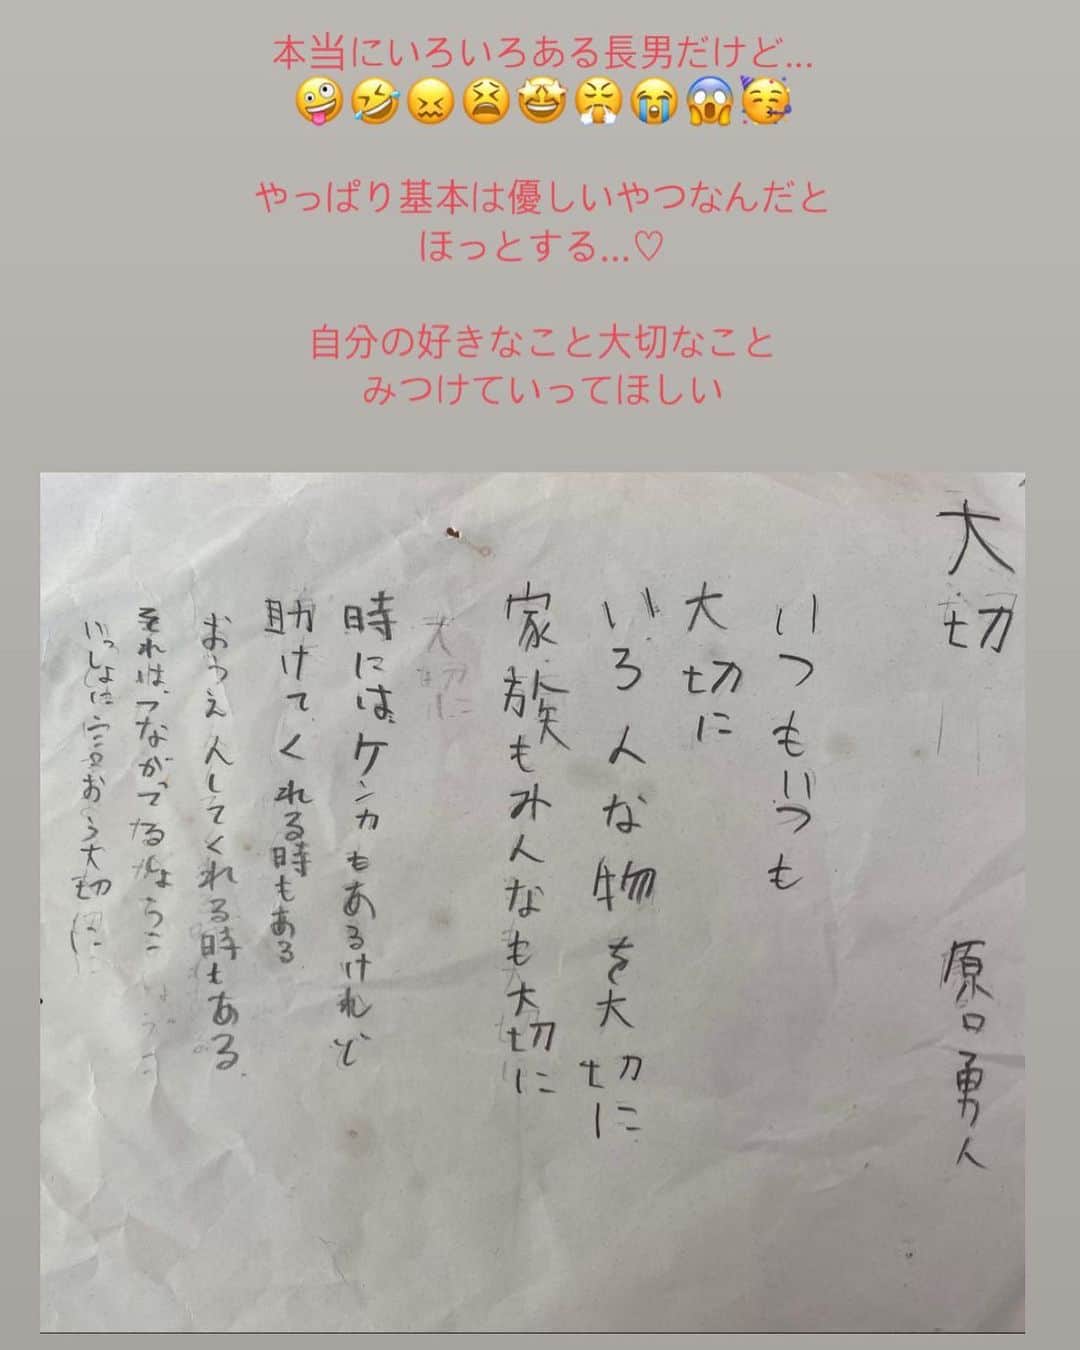 本当にいろいろある長男だけど...
🤪🤣😖😫🤩😤😭😱🥳
やっぱり基本は優しいやつなんだと
ほっとする...♡
自分の好きなこと大切なこと
みつけていってほしい
大切 原口勇人
いつもいつも
大切に
いろんな物を大切に
家族もみんなも大切に
大切に
時にはケンカもあるけれど
助けてくれる時もある
おうえんしてくれる時もある
それはつながってる
いっしょに言おう大切に